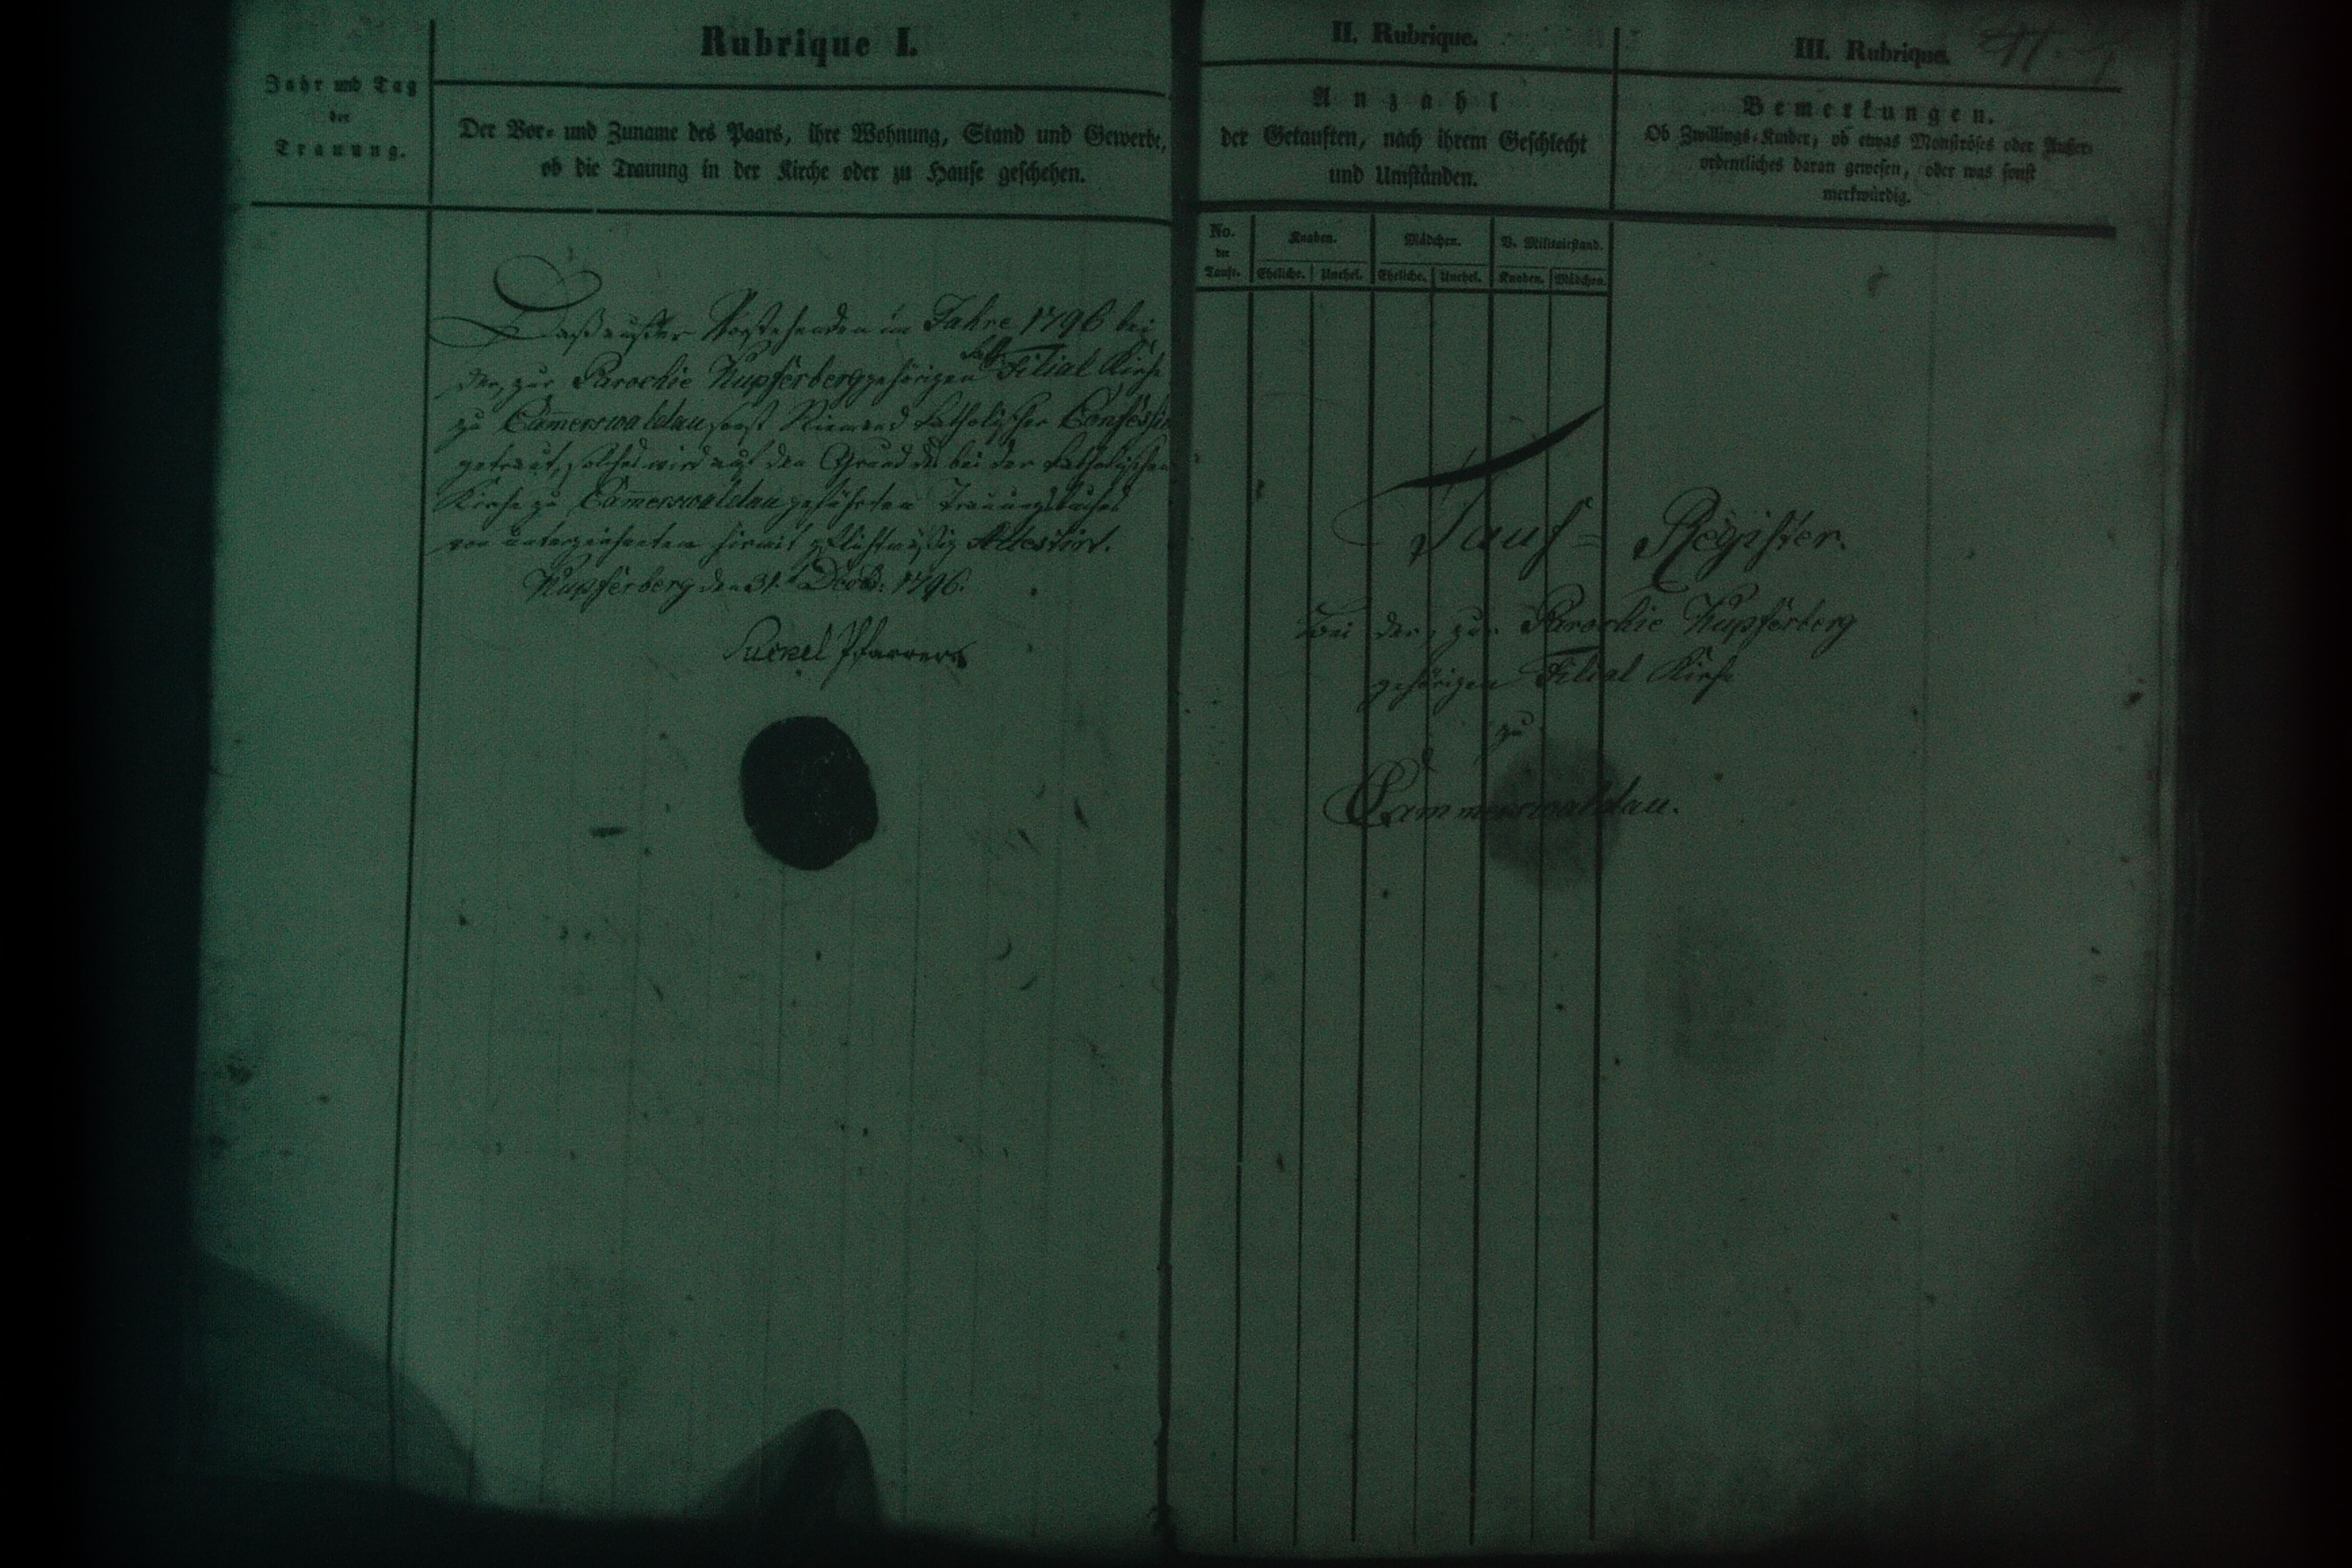 Rubrique I.
Jahr und Tag
der
Trauung.
Der Vor- und Zuname des Paars, ihre Wohnung, Stand und Gewerbe,
ob die Trauung in der Kirche oder zu Hause geschehen.
Daß außer Vorstehenden im Jahre 1796 bei
der, zur Parochie Kupferberg gehörigen Filial Kirche
zu Cam̅erswaldau sonst Niemand katholischer Confession
getraut, solches wird auf den Grund des bei der katholischen
Kirche zu Cam̅erswaldau geführten Trauungsbuches
von unterzeichneten hiermit pflichtmäßig Attestirt.
Kupferberg den 31.t Decbr: 1796.
Pfarrer
II. Rubrique.
Anzahl
der Getauften, nach ihrem Geschlecht
und Umständen.
No.
der
Taufe.
Knaben.
Mädchen.
V. Militairstand.
Eheliche. Unehel. Eheliche. Unehel. Knaben. Mädchen.
III. Rubrique.
Bemerkungen.
Ob Zwillings-Kinder, ob etwas Monströses oder Außer-
ordentliches daran gewesen, oder was sonst
merkwürdig.
Tauf- Register.
Bei der, zur Parochie Kupferberg
gehörigen Filial Kirche
zu
Cammerswaldau.